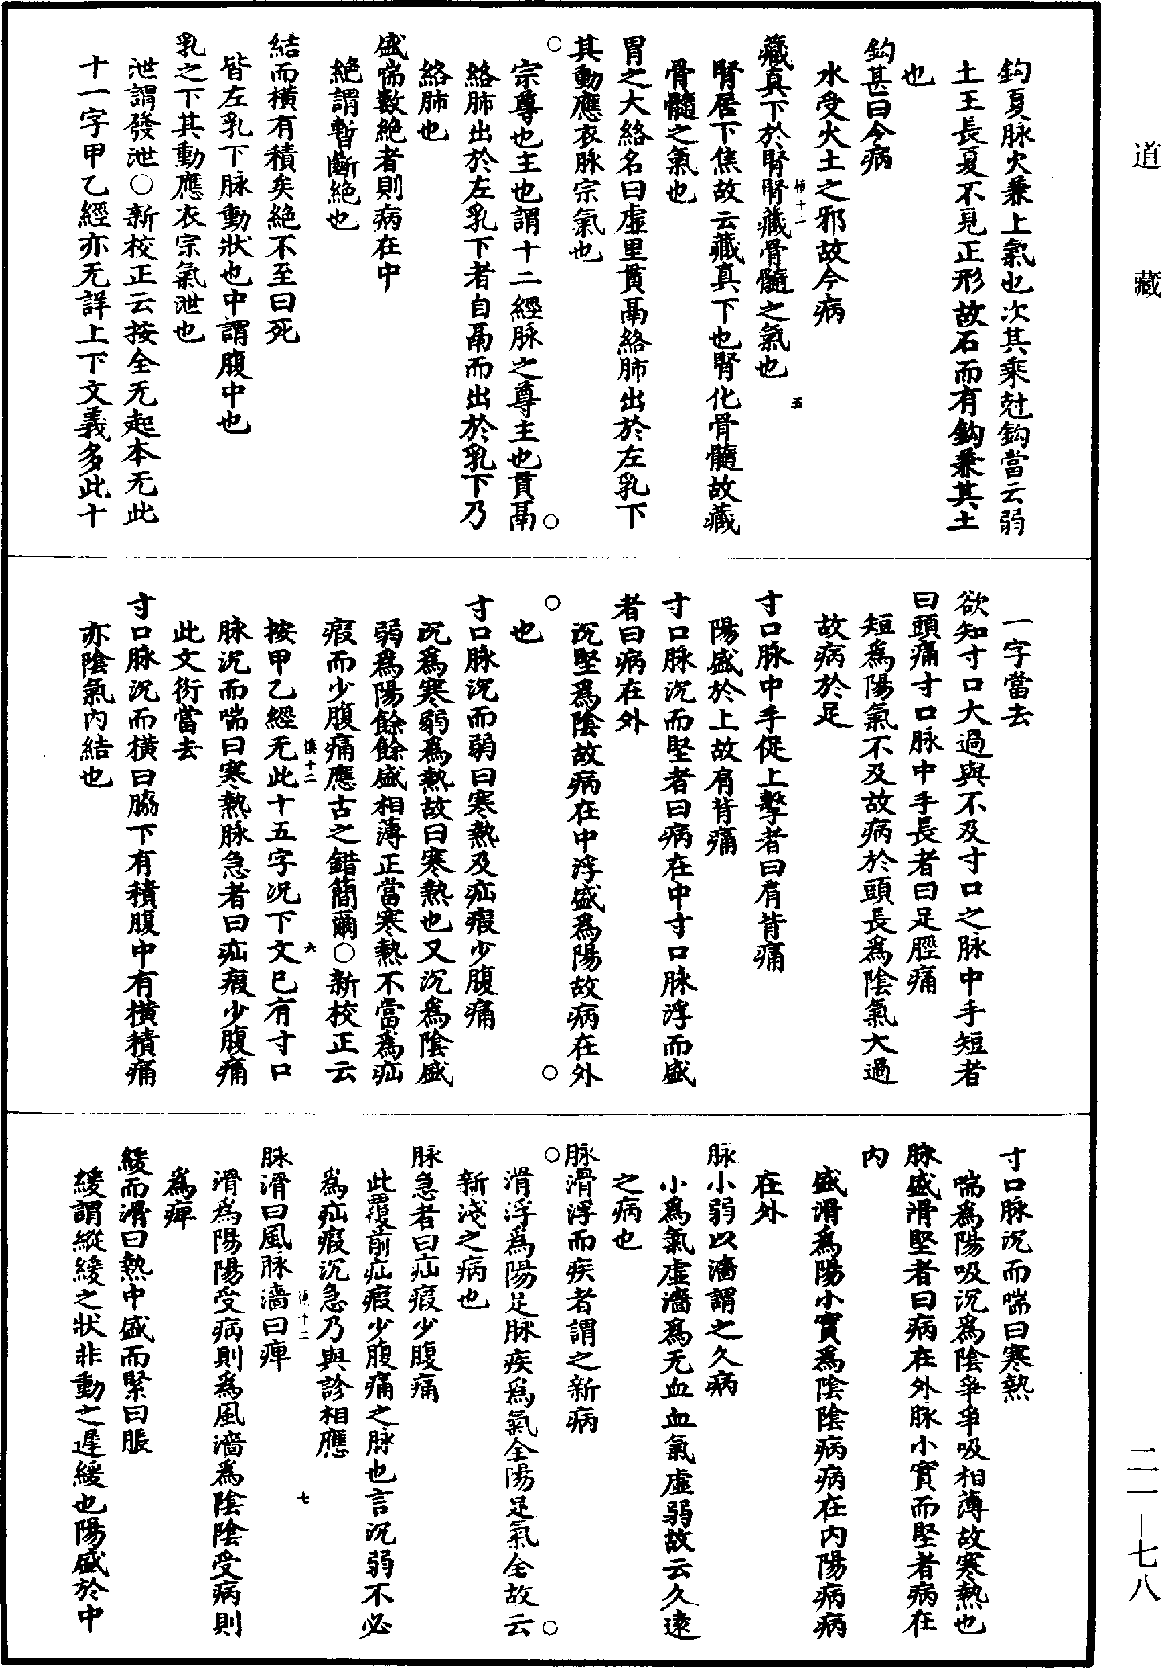 道藏
鈎夏脉火兼上氣也次其乘尅鈎當云弱
土王長夏不見正形故石而有鈎兼其土
也
鈎甚曰今病
水受火土之邪故今病
藏真下於腎腎藏骨髓之氣也
腎居下焦故云藏真下也腎化骨髓故藏
骨髓之氣也
胃之大絡名曰虛里貫鬲絡肺出於左乳下
其動應衣脉宗氣也
宗尊也主也謂十二經脉之尊主也貫鬲
絡肺出於左乳下者自鬲而出於乳下乃
絡肺也
盛喘數絶者則病在中
絶謂暫斷絶也
結而橫有積矣絶不至曰死
皆左乳下脉動狀也中謂腹中也
乳之下其動應衣宗氣泄也
泄謂發泄○新校正云按全无起本无此
十一字甲乙經亦无詳上下文義多此十
一字當去
欲知寸口大過與不及寸口之脉中手短者
曰頭痛寸口脉中手長者曰足脛痛
短為陽氣不及故病於頭長為陰氣大過
故病於足
寸口脉中手促上擊者曰肩背痛
陽盛於上故肩背痛
寸口脉沉而堅者曰病在中寸口脉浮而盛
者曰病在外
沉堅為陰故病在中浮盛為陽故病在外
也
寸口脉沉而弱曰寒熱及疝瘕少腹痛
沉為寒弱為熱故曰寒熱也又沉為陰盛
弱為陽餘餘盛相薄正當寒熱不當為疝
瘕而少腹痛應古之錯簡爾○新校正云
按甲乙經无此十五字況下文已有寸口
脉沉而喘曰寒熱脉急者曰疝瘕少腹痛
此文衍當去
寸口脉沉而橫曰脇下有積腹中有橫積痛
亦陰氣內結也
寸口脉沉而喘曰寒熱
喘為陽吸沉為陰爭爭吸相薄故寒熱也
脉盛滑堅者曰病在外脉小實而堅者病在
內
盛滑為陽小實為陰陰病病在內陽病病
在外
脉小弱以濇謂之久病
小為氣虛濇為无血血氣虛弱故云久遠
之病也
脉滑浮而疾者謂之新病
滑浮為陽足脉疾為氣全陽足氣全故云
新淺之病也
脉急者曰疝瘕少腹痛
此覆前疝瘕少腹痛之脉也言沉弱不必
為疝瘕沉急乃與診相應
脉滑曰風脉濇曰痺
滑為陽陽受病則為風濇為陰陰受病則
為痺
緩而滑曰熱中盛而緊曰脹
緩謂縱緩之狀非動之遲緩也陽盛於中
二一—七八